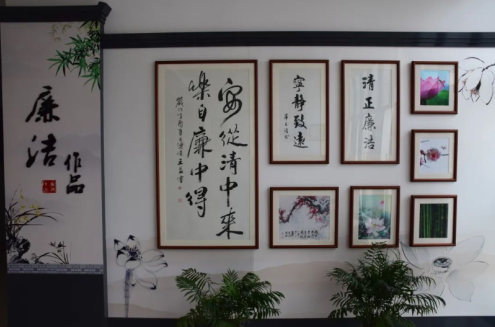 廉洁
作品
安從清中來
樂自廉中得
宁静致遠
清正廉洁